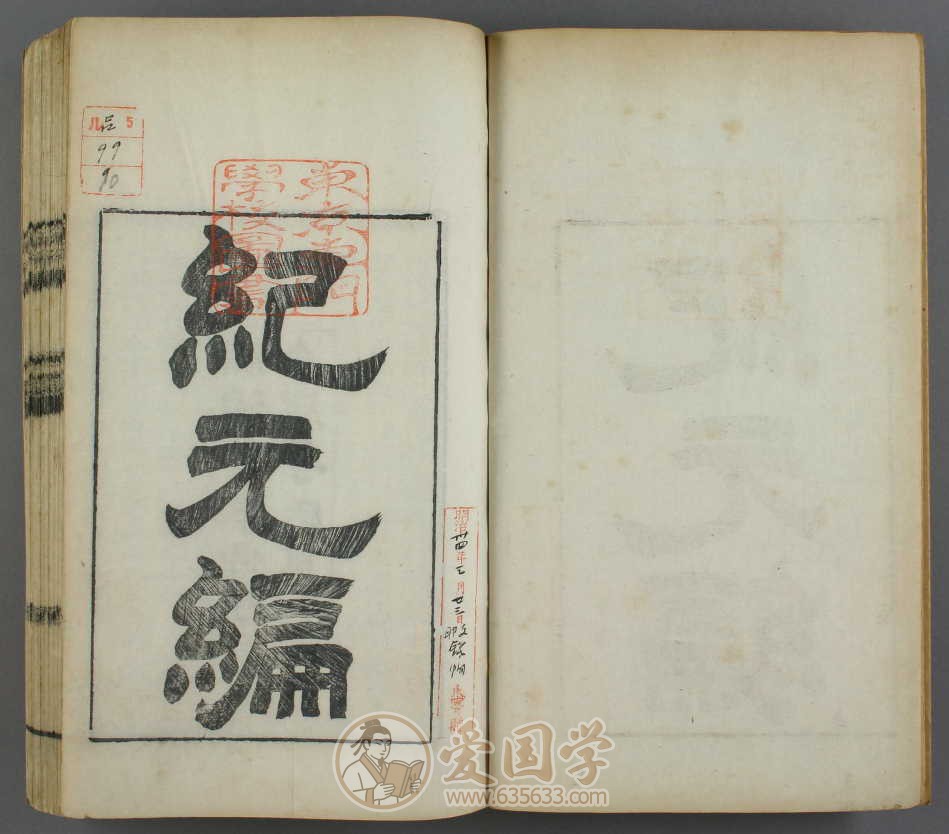 紀元編
東京専門
學校圖書
5
99
90
明治卅四年三月廿三日
爱国学
www.635633.com